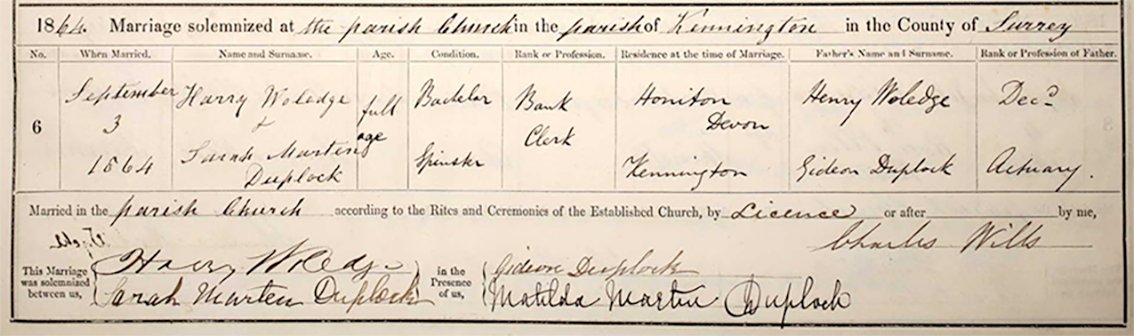 1864. Marriage solemnized at the parish Church in the parish of Kennington in the County of Surrey
No. When Married. Name and Surname. Age. Condition. Rank or Profession. Residence at the time of Marriage. Father's Name and Surname. Rank or Profession of Father.
September Harry Woledge full Bachelor Bank Honiton Henry Woledge Decd
6 3 & age Clerk Devon
1864 Sarah Marten Spinster Kennington Gideon Duplock Actuary.
Duplock
Married in the parish Church according to the Rites and Ceremonies of the Established Church, by Licence or after by me,
Charles Wills
This Marriage was solemnized between us, Harry Woledge in the Presence of us, Gideon Duplock
Sarah Marten Duplock Matilda Marten Duplock